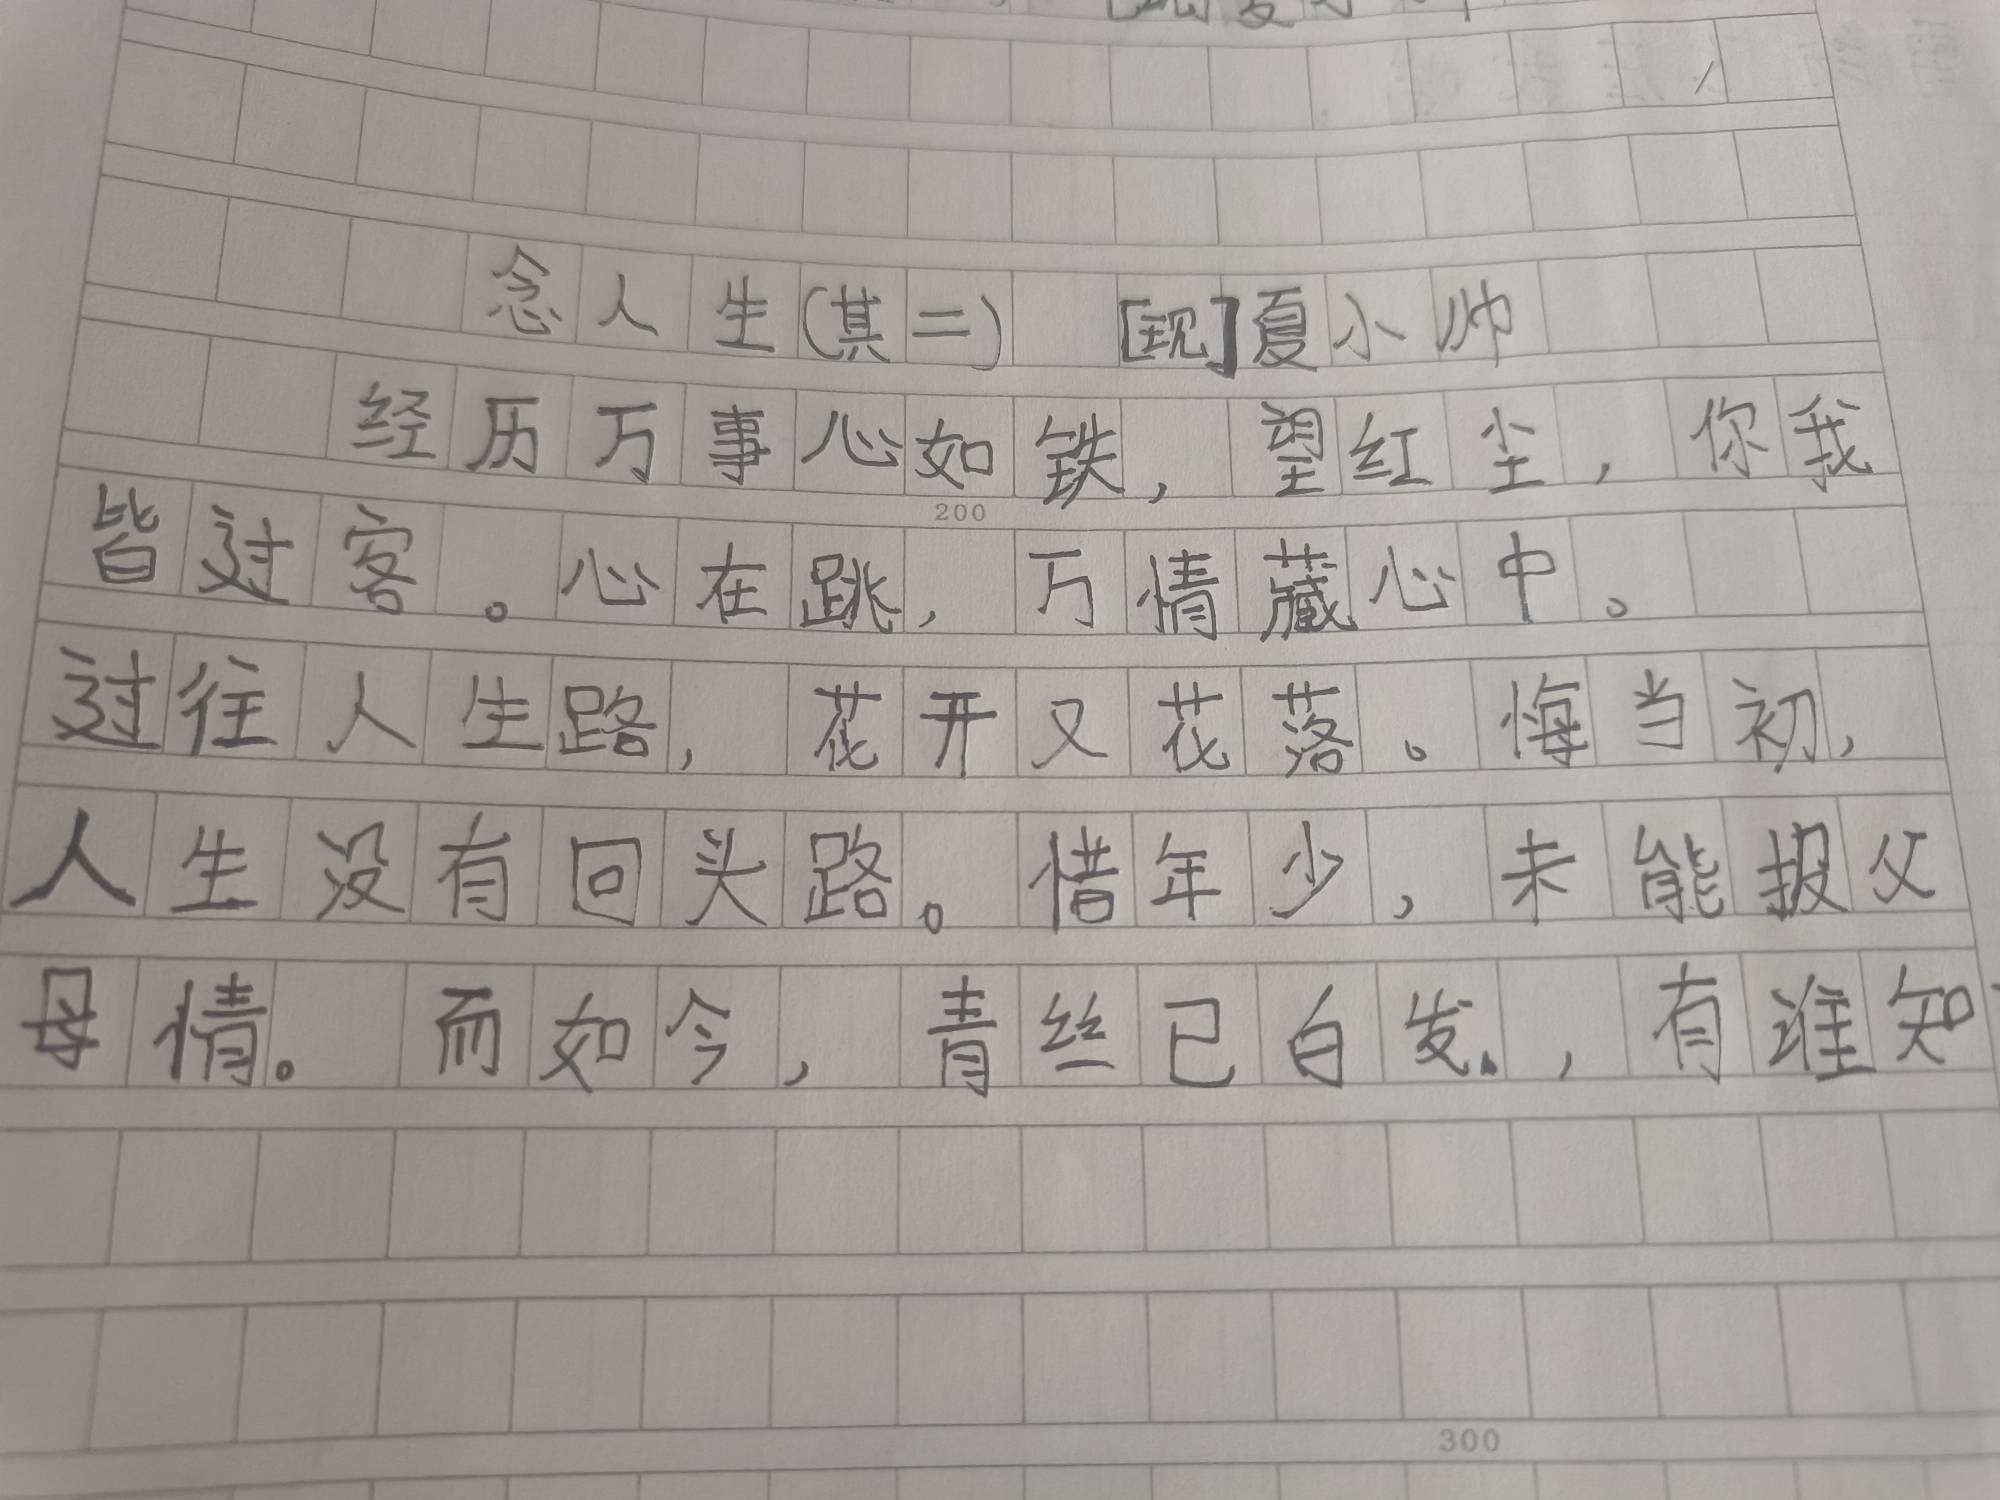 念人生(其二) [现]夏小帅
经历万事心如铁，望红尘，你我
200
皆过客。心在跳，万情藏心中。
过往人生路，花开又花落。悔当初，
人生没有回头路。惜年少，未能报父
母情。而如今，青丝已白发，有谁知
300